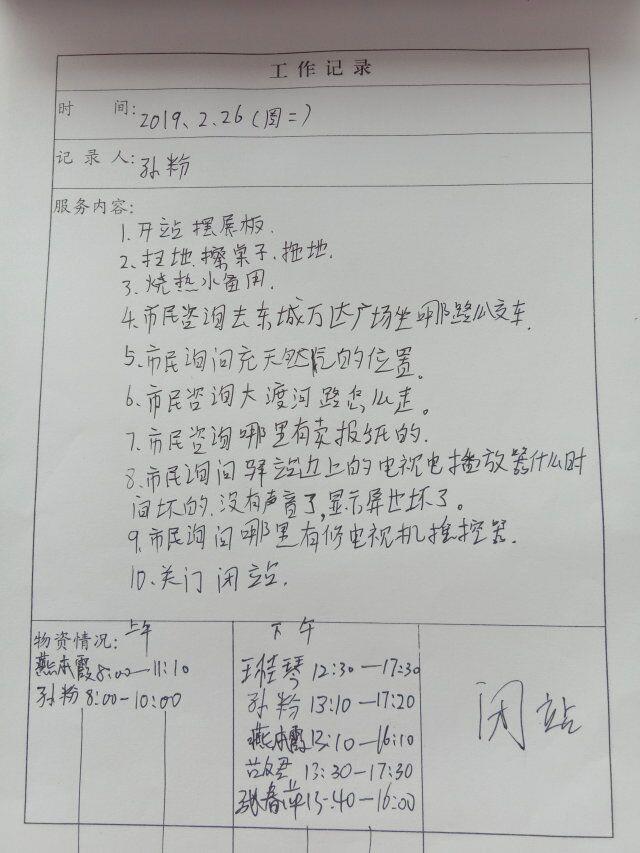 工作记录
时 间: 2019、2.26(周二)
记录人: 孙粉
服务内容:
1.开站 摆展板.
2、扫地.擦桌子.拖地.
3.烧热水备用.
4.市民咨询去东城万达广场坐哪路公交车.
5、市民询问充天然气的位置。
6、市民咨询大渡河路怎么走。
7、市民咨询哪里有卖报纸的.
8.市民询问驿站边上的电视电播放器什么时
间坏的.没有声音了,显示屏也坏了。
9.市民询问哪里有修电视机摇控器.
10.关门闭站.
物资情况: 上午
燕本霞8:00—11:10
孙粉8:00-10:00
下午
王桂琴 12:30—17:30
孙粉 13:10—17:20
燕本霞13:10—16:10
13:30-17:30
张春萍13:40—16:00
闭站